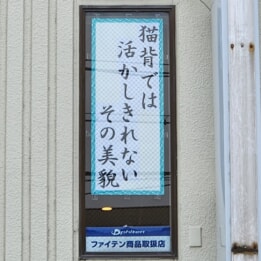 猫背では
活かしきれない
その美貌
ファイテン商品取扱店